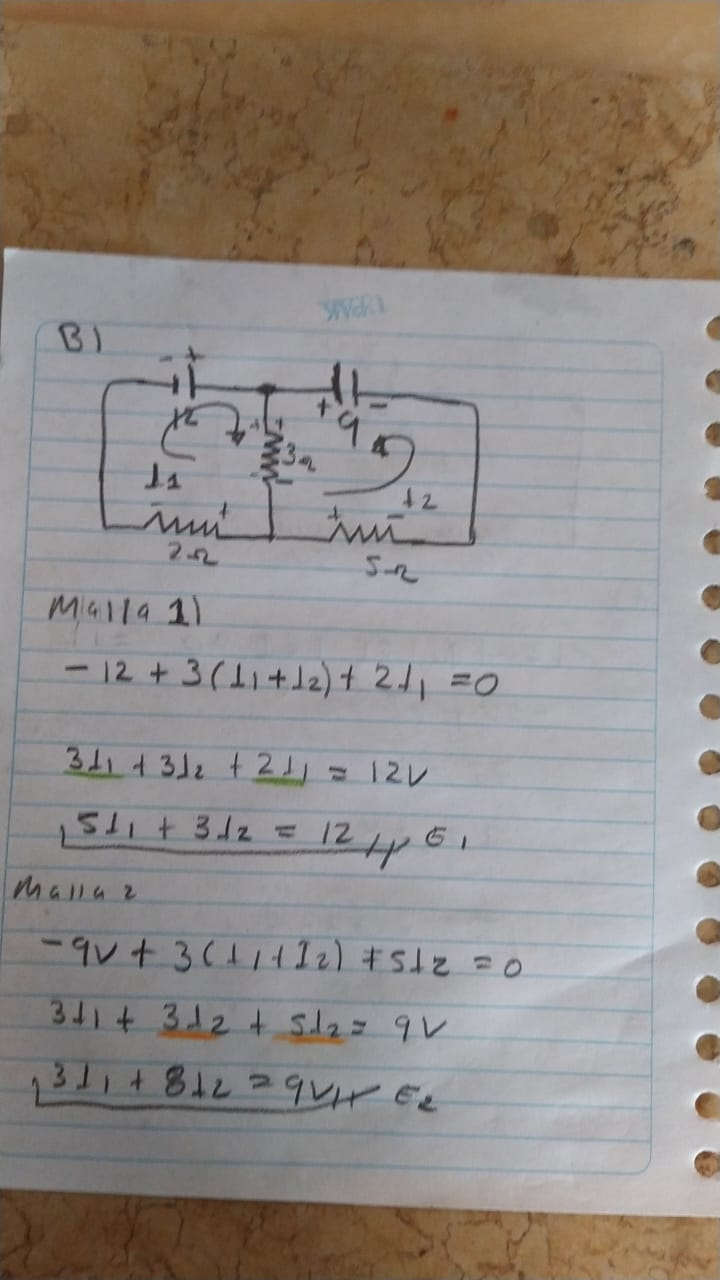 B)
- +
12
+ 9 -
+ +
3Ω
-
I1
I2
- +
+ -
2Ω
5Ω
Malla 1)
- 12 + 3(I1+I2) + 2I1 = 0
3I1 + 3I2 + 2I1 = 12V
5I1 + 3I2 = 12 // E1
Malla 2
- 9V + 3(I1+I2) + 5I2 = 0
3I1 + 3I2 + 5I2 = 9V
3I1 + 8I2 = 9V // E2